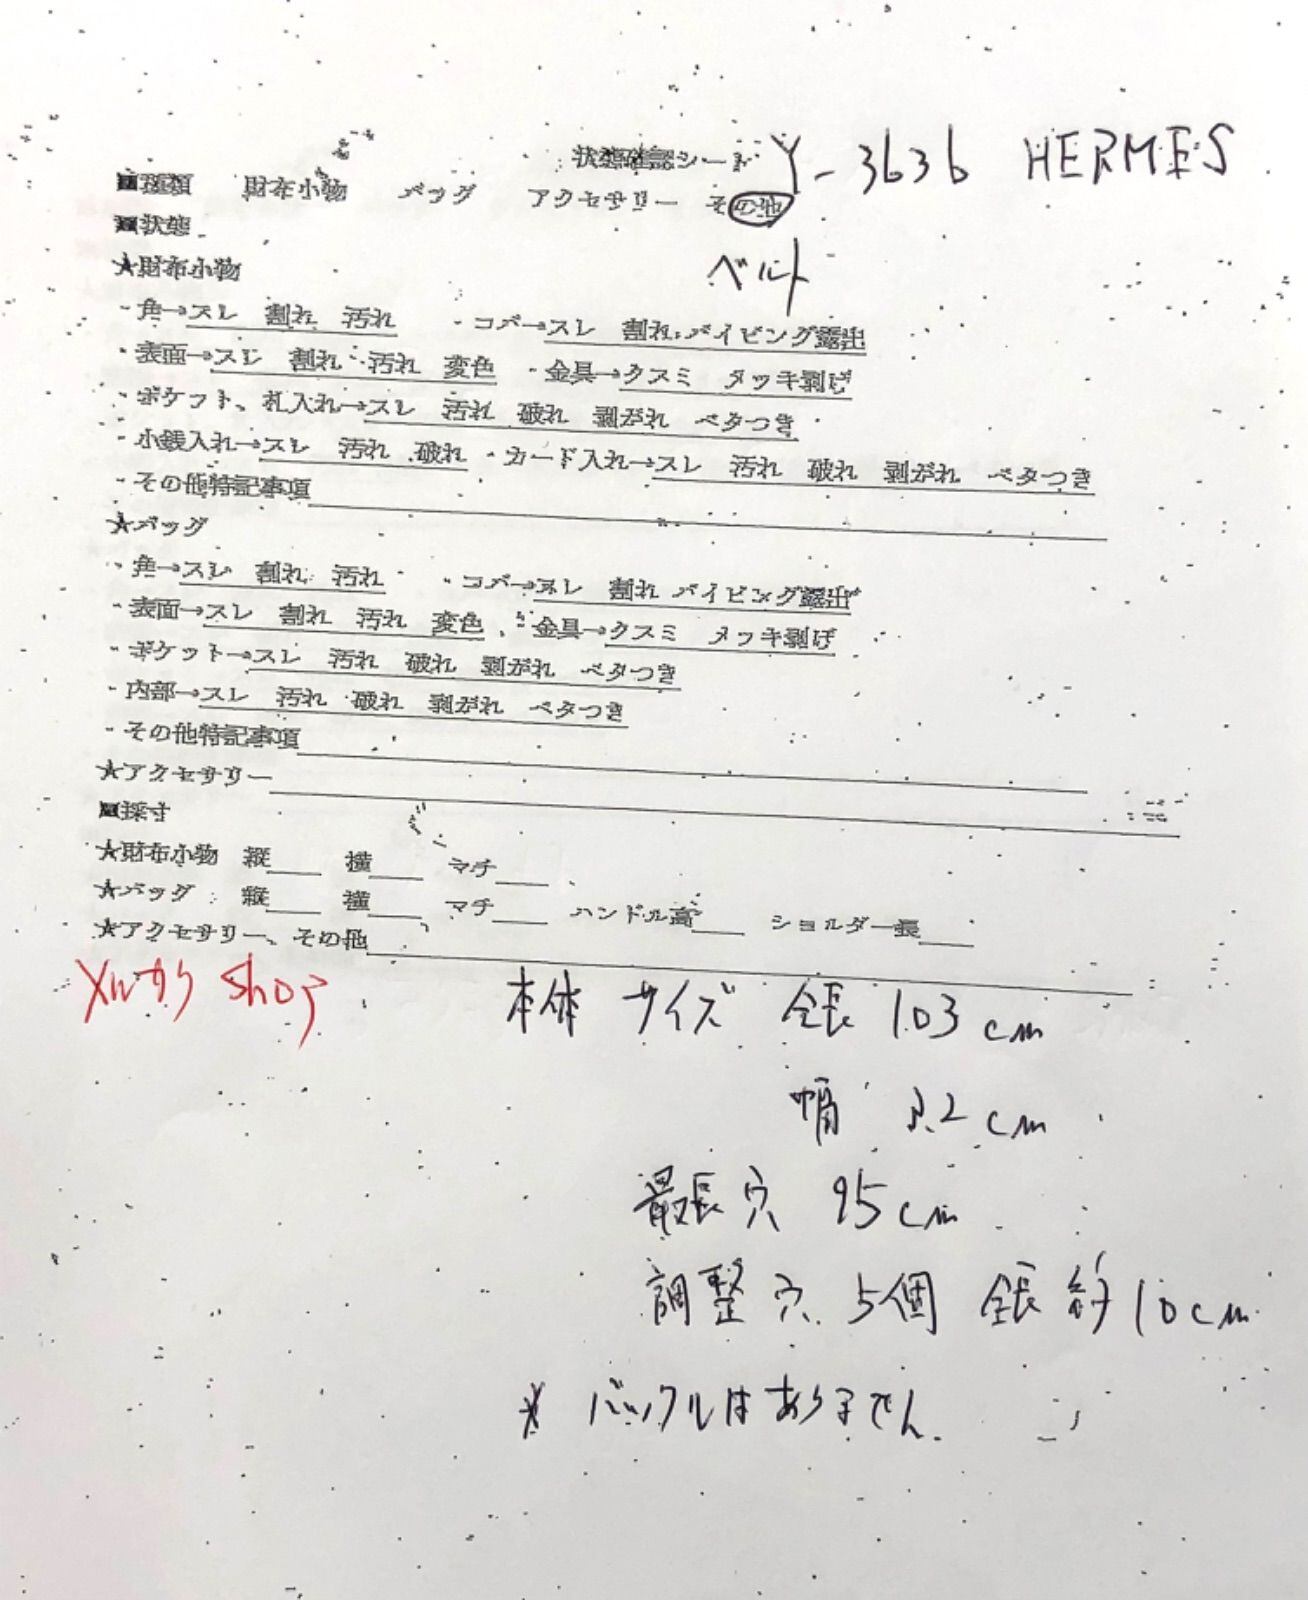 状態確認シート Y-3636 HERMES
■種類 財布小物 バッグ アクセサリー その他
■状態 ベルト
★財布小物
・角→スレ 割れ 汚れ ・コバ→スレ 割れ パイピング露出
・表面→スレ 割れ 汚れ 変色 ・金具→クスミ メッキ剥げ
・ポケット、札入れ→スレ 汚れ 破れ 剥がれ ベタつき
・小銭入れ→スレ 汚れ 破れ ・カード入れ→スレ 汚れ 破れ 剥がれ ベタつき
・その他特記事項
★バッグ
・角→スレ 割れ 汚れ ・コバ→スレ 割れ パイピング露出
・表面→スレ 割れ 汚れ 変色 ・金具→クスミ メッキ剥げ
・ポケット→スレ 汚れ 破れ 剥がれ ベタつき
・内部→スレ 汚れ 破れ 剥がれ ベタつき
・その他特記事項
★アクセサリー
■採寸
★財布小物 縦 横 マチ
★バッグ 縦 横 マチ ハンドル高 ショルダー長
★アクセサリー、その他
メルカリ Shop 本体 サイズ 全長 103cm
幅 3.2cm
最長穴 95cm
調整穴 5個 全長 約10cm
※ バックルはありません